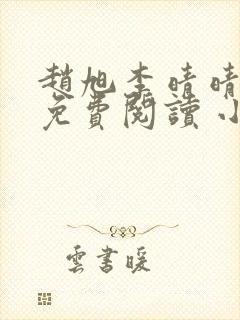 趙旭李晴晴
免費閱讀小
雲書暖